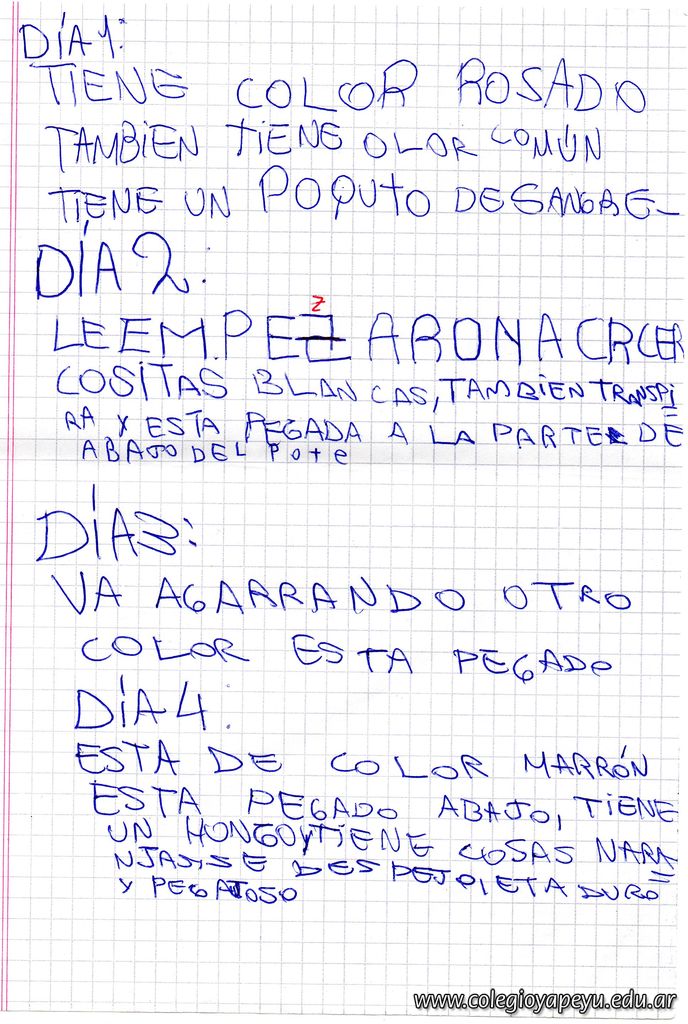 DÍA 1:
TIENE COLOR ROSADO
TAMBIEN TIENE OLOR COMÚN
TIENE UN POQUTO DE SANGRE-
DÍA 2:
z
LE EMPEZARON A CRCER
COSITAS BLANCAS, TAMBIEN TRANSPI=
RA Y ESTA PEGADA A LA PARTE DE
ABAJO DEL POTE
DÍA 3:
VA AGARRANDO OTRO
COLOR ESTA PEGADO
DÍA 4:
ESTA DE COLOR MARRÓN
ESTA PEGADO ABAJO, TIENE
UN HONGO Y TIENE COSAS NARA=
NJAS, SE DESPEJO, ETA DURO
Y PEGATOSO
www.colegioyapeyu.edu.ar